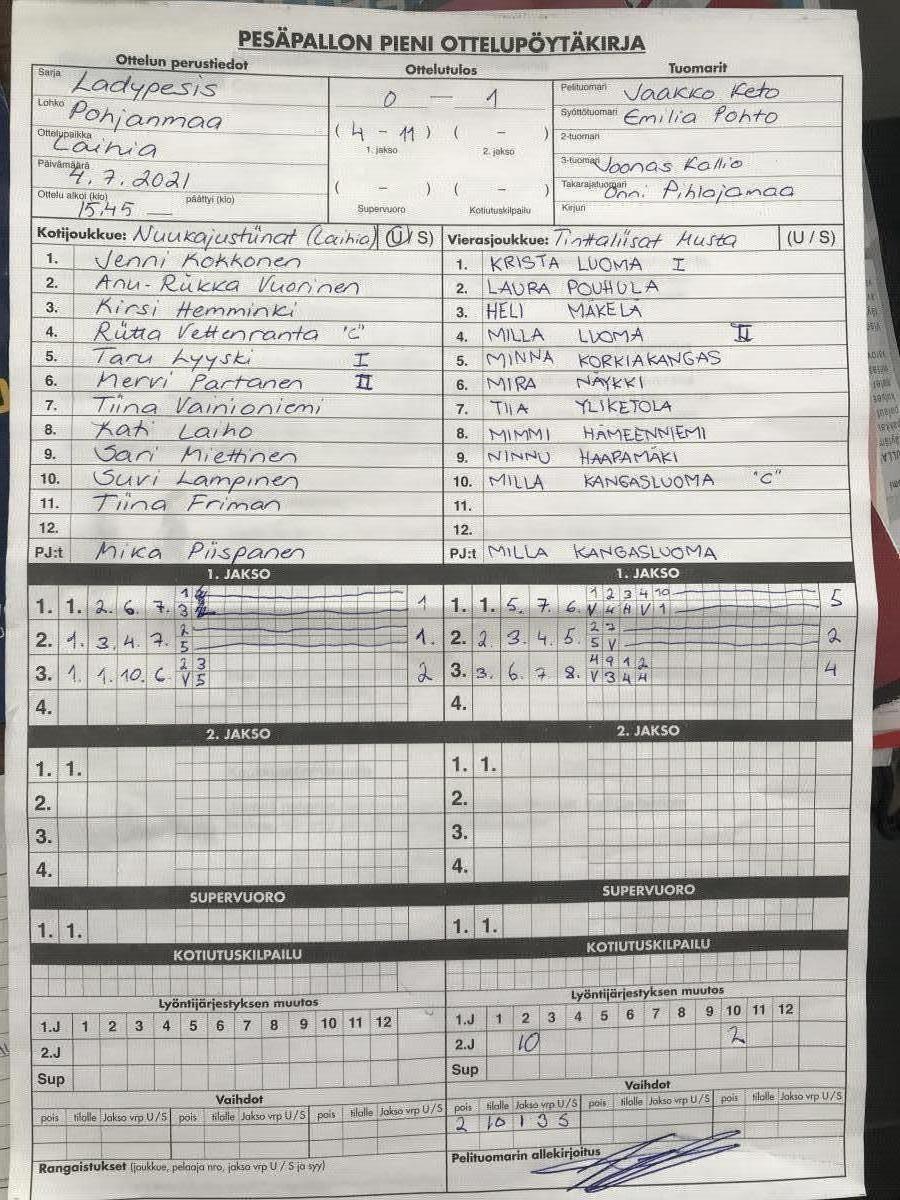 PESÄPALLON PIENI OTTELUPÖYTÄKIRJA
Ottelun perustiedot Ottelutulos Tuomarit
Sarja Ladypesis
Lohko Pohjanmaa
Ottelupaikka Laihia
Päivämäärä 4.7.2021
Ottelu alkoi (klo) 15.45 — päättyi (klo)
0 — 1
( 4 - 11 ) ( - )
1. jakso 2. jakso
( - ) ( - )
Supervuoro Kotiutuskilpailu
Pelituomari Jaakko Keto
Syöttötuomari Emilia Pohto
2-tuomari
3-tuomari Joonas Kallio
Takarajatuomari Onni Pihlajamaa
Kirjuri
Kotijoukkue: Nuukajustiinat (Laihia) (U/S)
1. Jenni Kokkonen
2. Anu-Riikka Vuorinen
3. Kirsi Hemminki
4. Riitta Vettenranta "C"
5. Taru Lyyski I
6. Mervi Partanen II
7. Tiina Vainioniemi
8. Kati Laiho
9. Sari Miettinen
10. Suvi Lampinen
11. Tiina Friman
12.
PJ:t Mika Piispanen
Vierasjoukkue: Tinttaliisat Musta (U / S)
1. KRISTA LUOMA I
2. LAURA POUHULA
3. HELI MÄKELÄ
4. MILLA LUOMA II
5. MINNA KORKIAKANGAS
6. MIRA NÄYKKI
7. TIIA YLIKETOLA
8. MIMMI HÄMEENNIEMI
9. NINNU HAAPAMÄKI
10. MILLA KANGASLUOMA "C"
11.
12.
PJ:t MILLA KANGASLUOMA
1. JAKSO
1. 1. 2. 6. 7. 1 3 1
2. 1. 3. 4. 7. 2 5 1.
3. 1. 1. 10. 6. 2 3 V 5 2
4.
1. JAKSO
1. 1. 5. 7. 6. 1 2 3 4 10 V 4 H V 1 5
2. 2. 3. 4. 5. 2 7 5 V 2
3. 3. 6. 7 8. 4 9 1 2 V 3 4 4 4
4.
2. JAKSO
1. 1.
2.
3.
4.
2. JAKSO
1. 1.
2.
3.
4.
SUPERVUORO
1. 1.
SUPERVUORO
1. 1.
KOTIUTUSKILPAILU
KOTIUTUSKILPAILU
Lyöntijärjestyksen muutos
1.J 1 2 3 4 5 6 7 8 9 10 11 12
2.J
Sup
Lyöntijärjestyksen muutos
1.J 1 2 3 4 5 6 7 8 9 10 11 12
2.J 10 2
Sup
Vaihdot
pois tilalle Jakso vrp U/S pois tilalle Jakso vrp U/S pois tilalle Jakso vrp U/S
Vaihdot
pois tilalle Jakso vrp U/S pois tilalle Jakso vrp U/S pois tilalle Jakso vrp U/S
2 10 1 3 S
Rangaistukset (joukkue, pelaaja nro, jakso vrp U / S ja syy)
Pelituomarin allekirjoitus